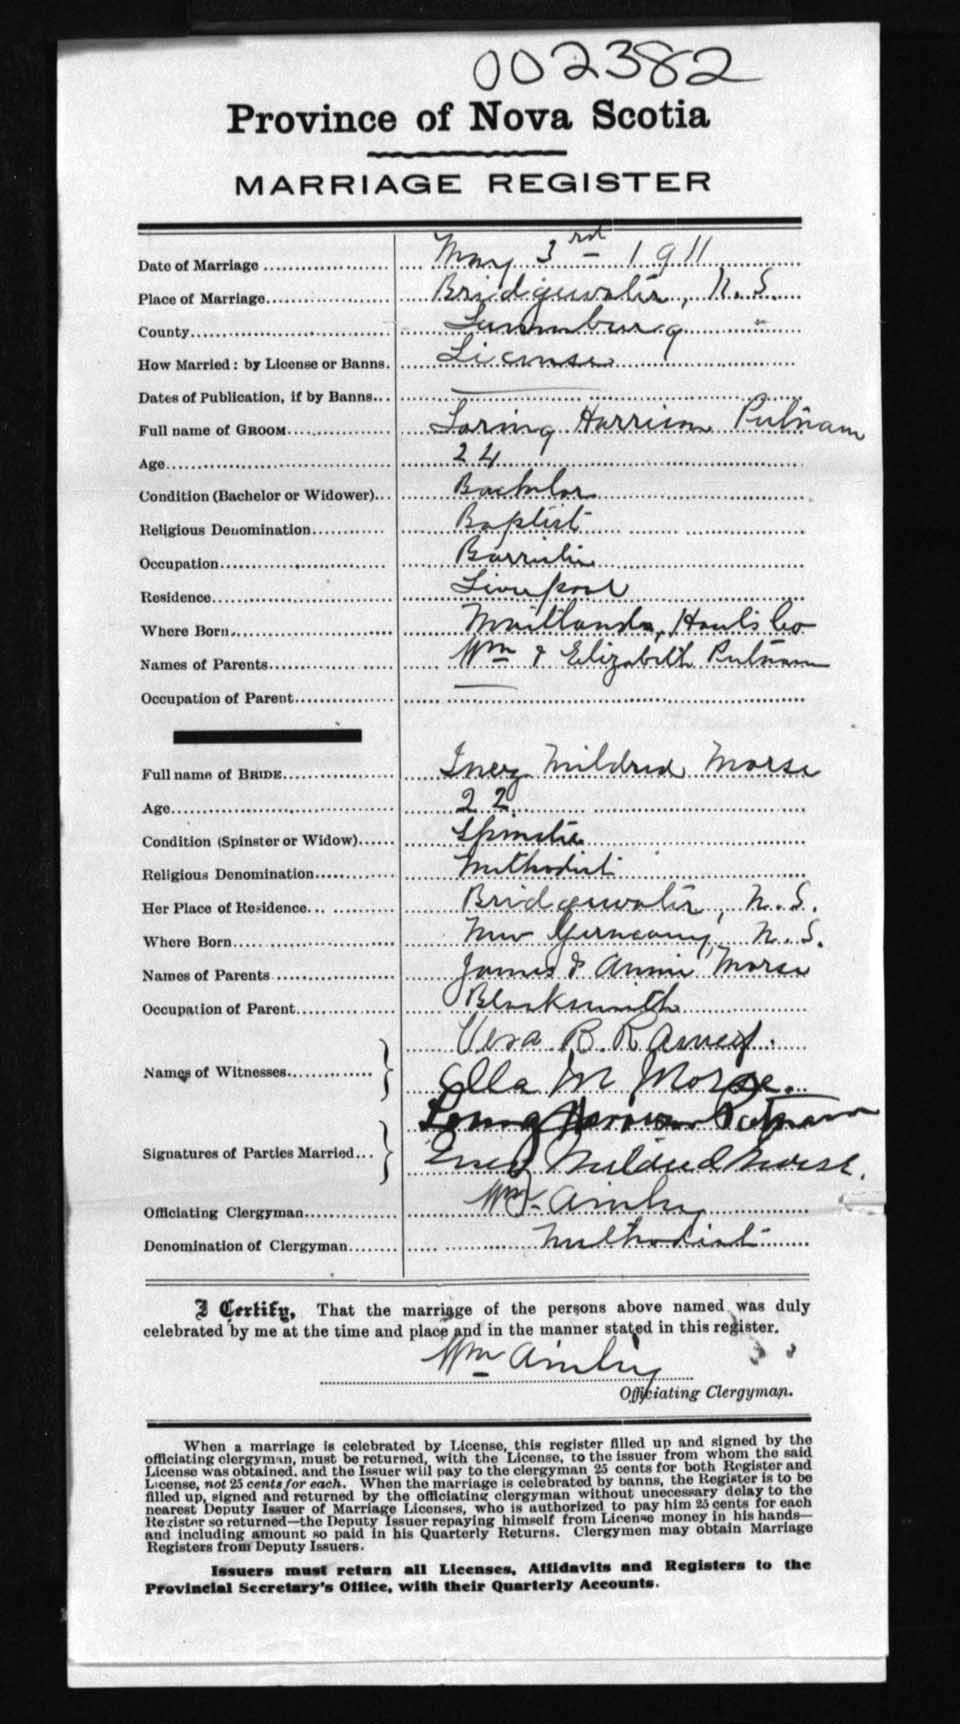 002382
Province of Nova Scotia
MARRIAGE REGISTER
Date of Marriage May 3rd 1911
Place of Marriage Bridgewater, N.S.
County Lunenburg
How Married: by License or Banns. License
Dates of Publication, if by Banns —
Full name of GROOM Loring Harrison Putnam
Age 24
Condition (Bachelor or Widower) Bachelor
Religious Denomination Baptist
Occupation Barrister
Residence Liverpool
Where Born Maitland, Hants Co
Names of Parents Wm & Elizabeth Putnam
Occupation of Parent —
Full name of BRIDE Inez Mildred Morse
Age 22
Condition (Spinster or Widow) Spinster
Religious Denomination Methodist
Her Place of Residence Bridgewater, N.S.
Where Born New Germany, N.S.
Names of Parents James & Annie Morse
Occupation of Parent Blacksmith
Names of Witnesses Vera B.
Ella M Morse.
Signatures of Parties Married Loring Harrison Putnam
Inez Mildred Morse.
Officiating Clergyman Wm Ainley
Denomination of Clergyman Methodist
I Certify, That the marriage of the persons above named was duly
celebrated by me at the time and place and in the manner stated in this register.
Wm Ainley
Officiating Clergyman.
When a marriage is celebrated by License, this register filled up and signed by the
officiating clergyman, must be returned, with the License, to the issuer from whom the said
License was obtained, and the Issuer will pay to the clergyman 25 cents for both Register and
License, not 25 cents for each. When the marriage is celebrated by banns, the Register is to be
filled up, signed and returned by the officiating clergyman without unnecessary delay to the
nearest Deputy Issuer of Marriage Licenses, who is authorized to pay him 25 cents for each
Register so returned—the Deputy Issuer repaying himself from License money in his hands—
and including amount so paid in his Quarterly Returns. Clergymen may obtain Marriage
Registers from Deputy Issuers.
Issuers must return all Licenses, Affidavits and Registers to the
Provincial Secretary's Office, with their Quarterly Accounts.